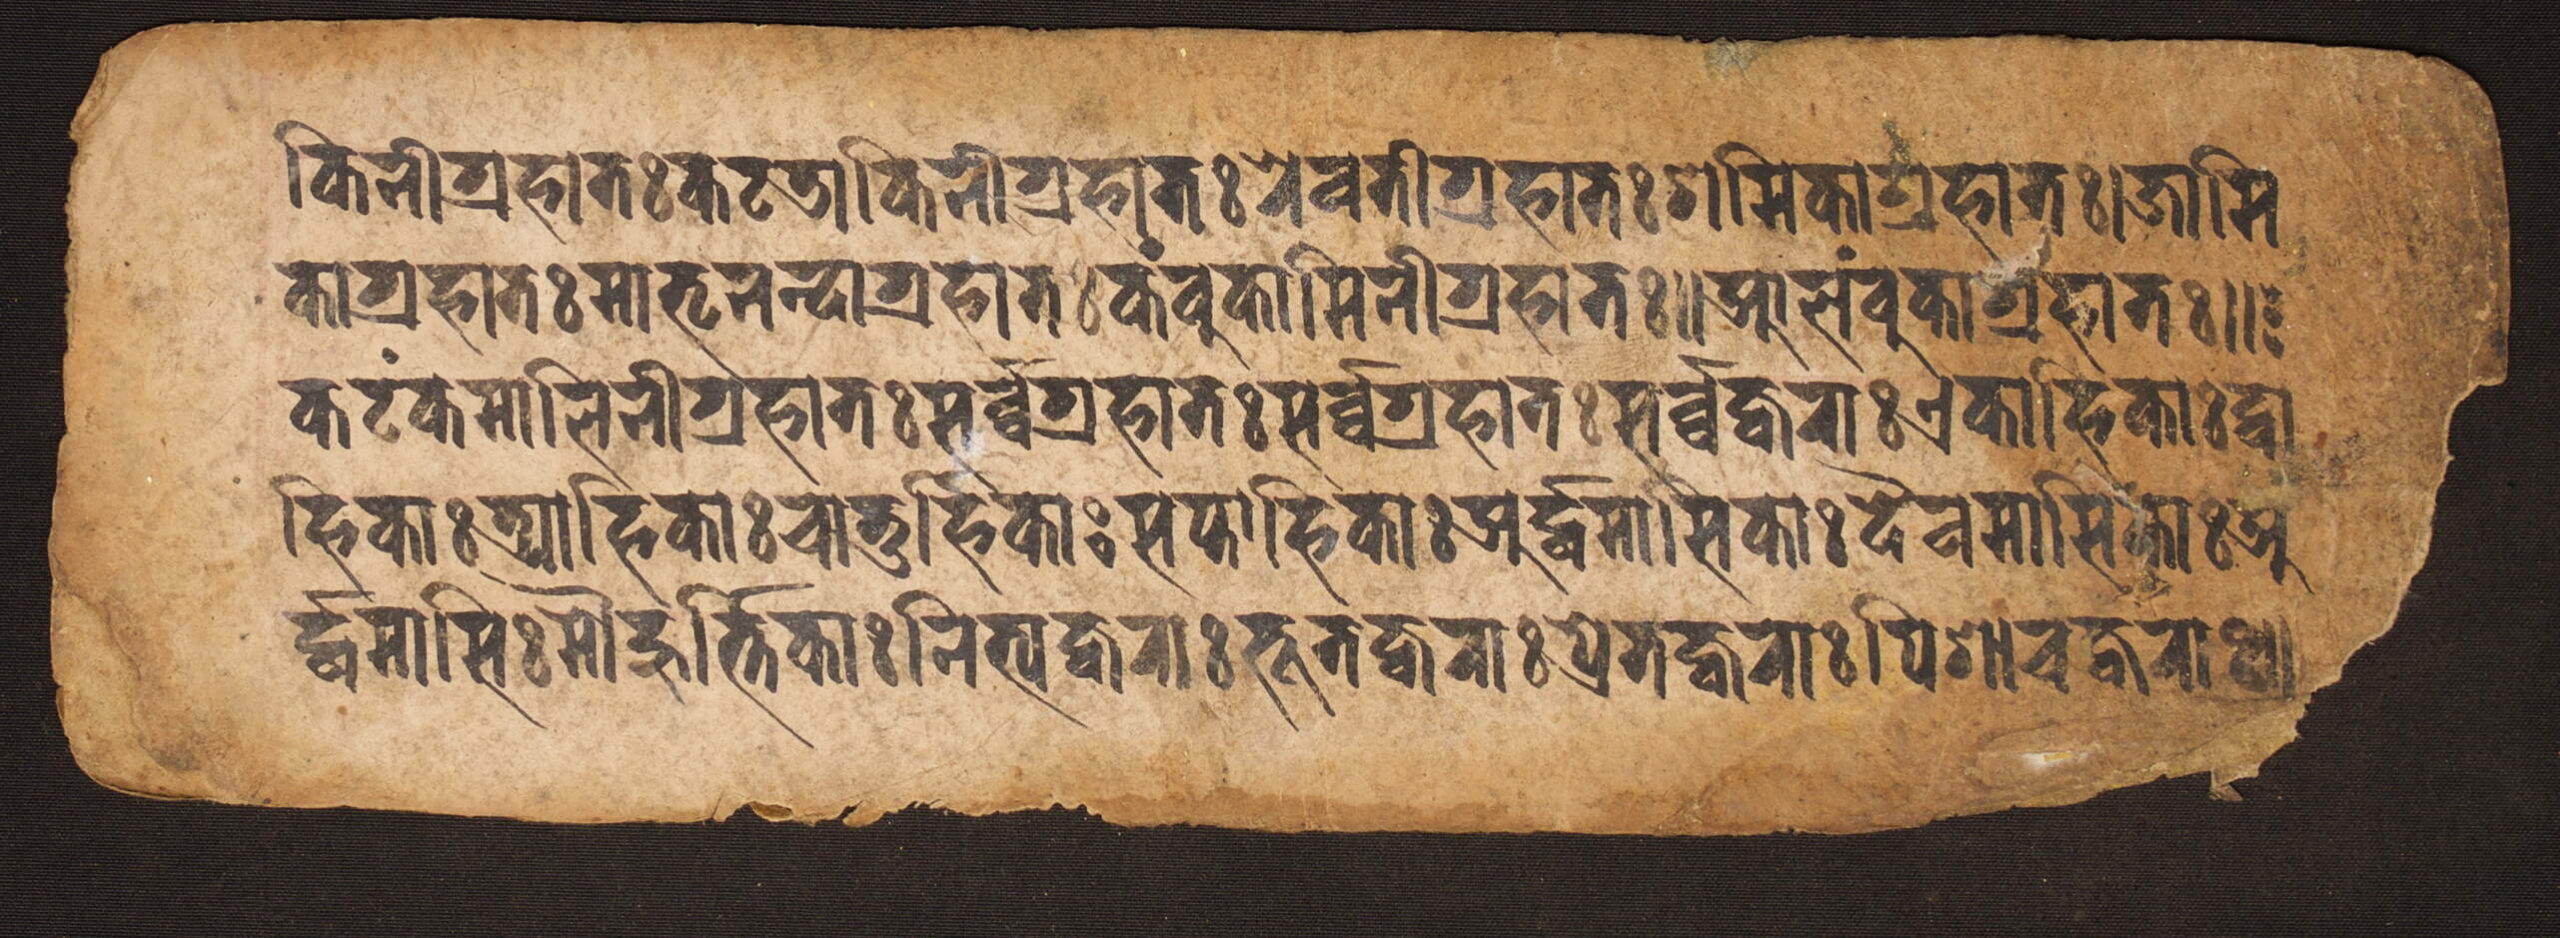 किनीग्रहातः कटडाकिनीग्रहातः रेवतीग्रहातः शमिकाग्रहातः। जामि
काग्रहातः मातृनन्दाग्रहातः कंवुकामिनीग्रहातः॥ आलंवुकाग्रहातः॥
कटंकमालिनीग्रहातः सर्व्वग्रहातः सर्व्वग्रहातः सर्व्वज्वराः एकाहिकाः द्वा
हिकाः त्र्याहिकाः चातुर्हिकाः सप्ताहिकाः अर्द्धमासिकाः दैवमासिकाः अ
र्द्धमासिः मौहूर्त्तिकाः नित्यज्वराः भूतज्वराः प्रेतज्वराः पिशाचज्वराः॥